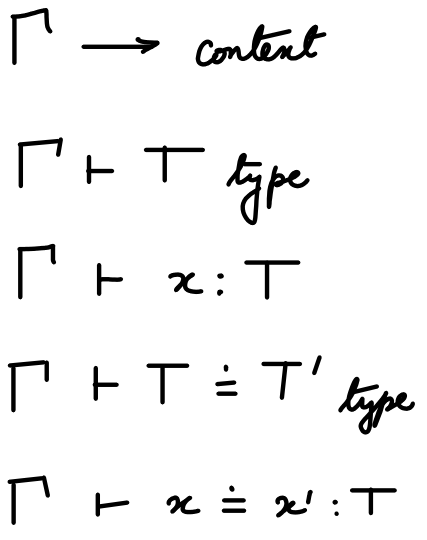 Γ ⟶ context
Γ ⊢ T type
Γ ⊢ x : T
Γ ⊢ T ≐ T′ type
Γ ⊢ x ≐ x′ : T